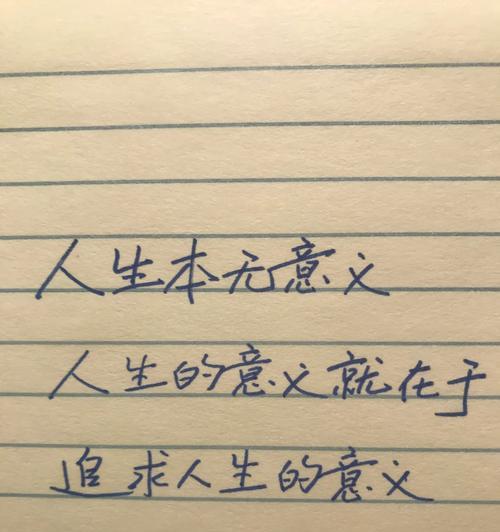 人生本无意义
人生的意义就在于
追求人生的意义